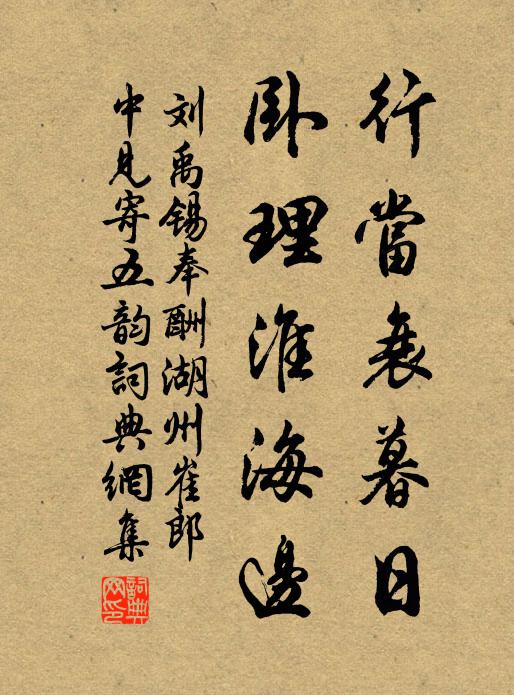 行當衰暮日
卧理淮海邊
刘禹锡奉酬湖州崔郎
中見寄五韵詞典網集
詞典网印